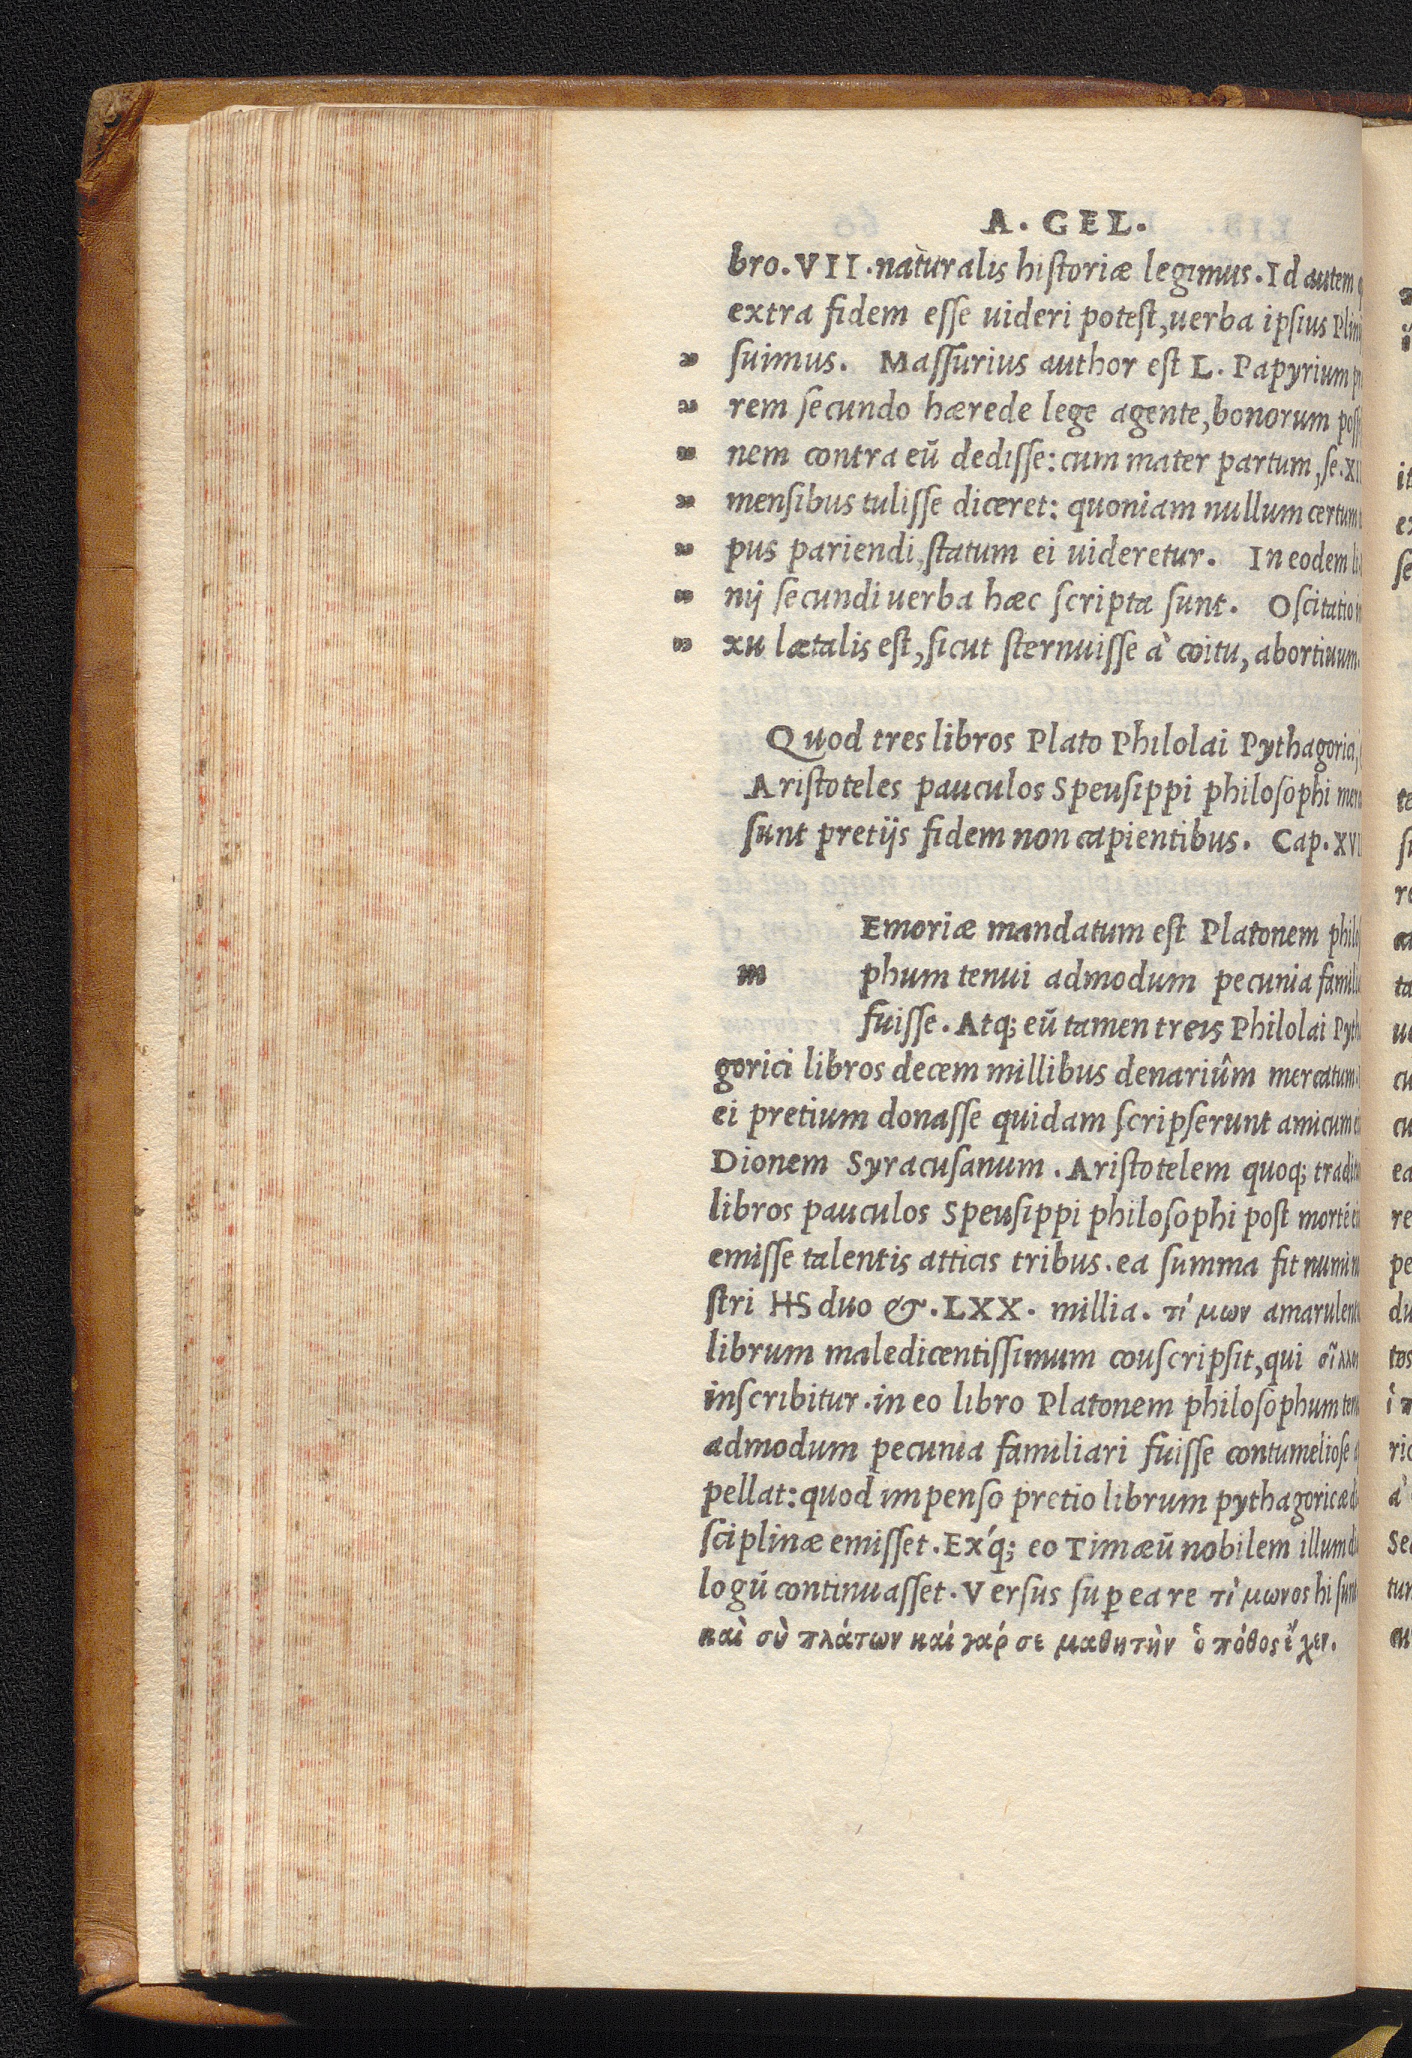 A. GEL.
bro. VII. naturalis historiæ legimus. Id autem
extra fidem esse uideri potest, uerba ipsius
„ suimus. Massurius author est L. Papyrium
„ rem secundo hærede lege agente, bonorum
„ nem contra eū dedisse: cum mater partum, se.
„ mensibus tulisse diceret: quoniam nullum certum
„ pus pariendi, statum ei uideretur. In eodem
„ nij secundi uerba hæc scripta sunt. Oscitatio
„ xu lætalis est, sicut sternuisse à coitu, abortiuum.
Quod tres libros Plato Philolai Pythagorici,
Aristoteles pauculos Speusippi philosophi
sunt pretijs fidem non capientibus. Cap. XVI
Emoriæ mandatum est Platonem
m phum tenui admodum pecunia
fuisse. Atq; eū tamen treis Philolai
gorici libros decem millibus denariûm mercatum.
ei pretium donasse quidam scripserunt amicum
Dionem Syracusanum. Aristotelem quoq;
libros pauculos Speusippi philosophi post mortē
emisse talentis atticis tribus. ea summa fit
stri HS duo &. LXX. millia. τί μων
librum maledicentissimum couscripsit, qui
inscribitur. in eo libro Platonem philosophum
admodum pecunia familiari fuisse contumeliose
pellat: quod impenso pretio librum pythagoricæ
sciplinæ emisset. Ex'q; eo Timæū nobilem illum
logū continuasset. Versus sup ea re τὶ μωνος hi
καὶ σὺ πλάτων καί γάρ σε μαθητὴν ὁ πόθος ἔχεν.